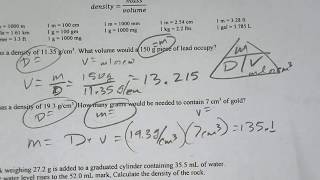 density = mass
volume
= 1000 m 1 m = 100 cm 1 m = 1000 mm 1 m = 2.54 cm 1 m = 3.28 ft
1 = 1.61 km 1 g = 100 1 g = 1000 mg 1 kg = 2.2 lbs 1 = 3.785 L
= 3.3 ft 1 m = 1000 mm
= m
as a density of 11.35 g/cm³. What volume would a 150 g piece of lead occupy?
D =
V =
m
D V
mL or cm³
V = m/D = 150g / 11.35 g/cm³ = 13.215
as a density of 19.3 g/cm³. How many grams would be needed to contain 7 cm³ of gold?
D =
m =
V =
m = D · V = (19.3 g/cm³)(7cm³) = 135.1
k weighing 27.2 g is added to a graduated cylinder containing 35.5 mL of water.
water level rises to the 52.0 mL mark, Calculate the density of the rock.